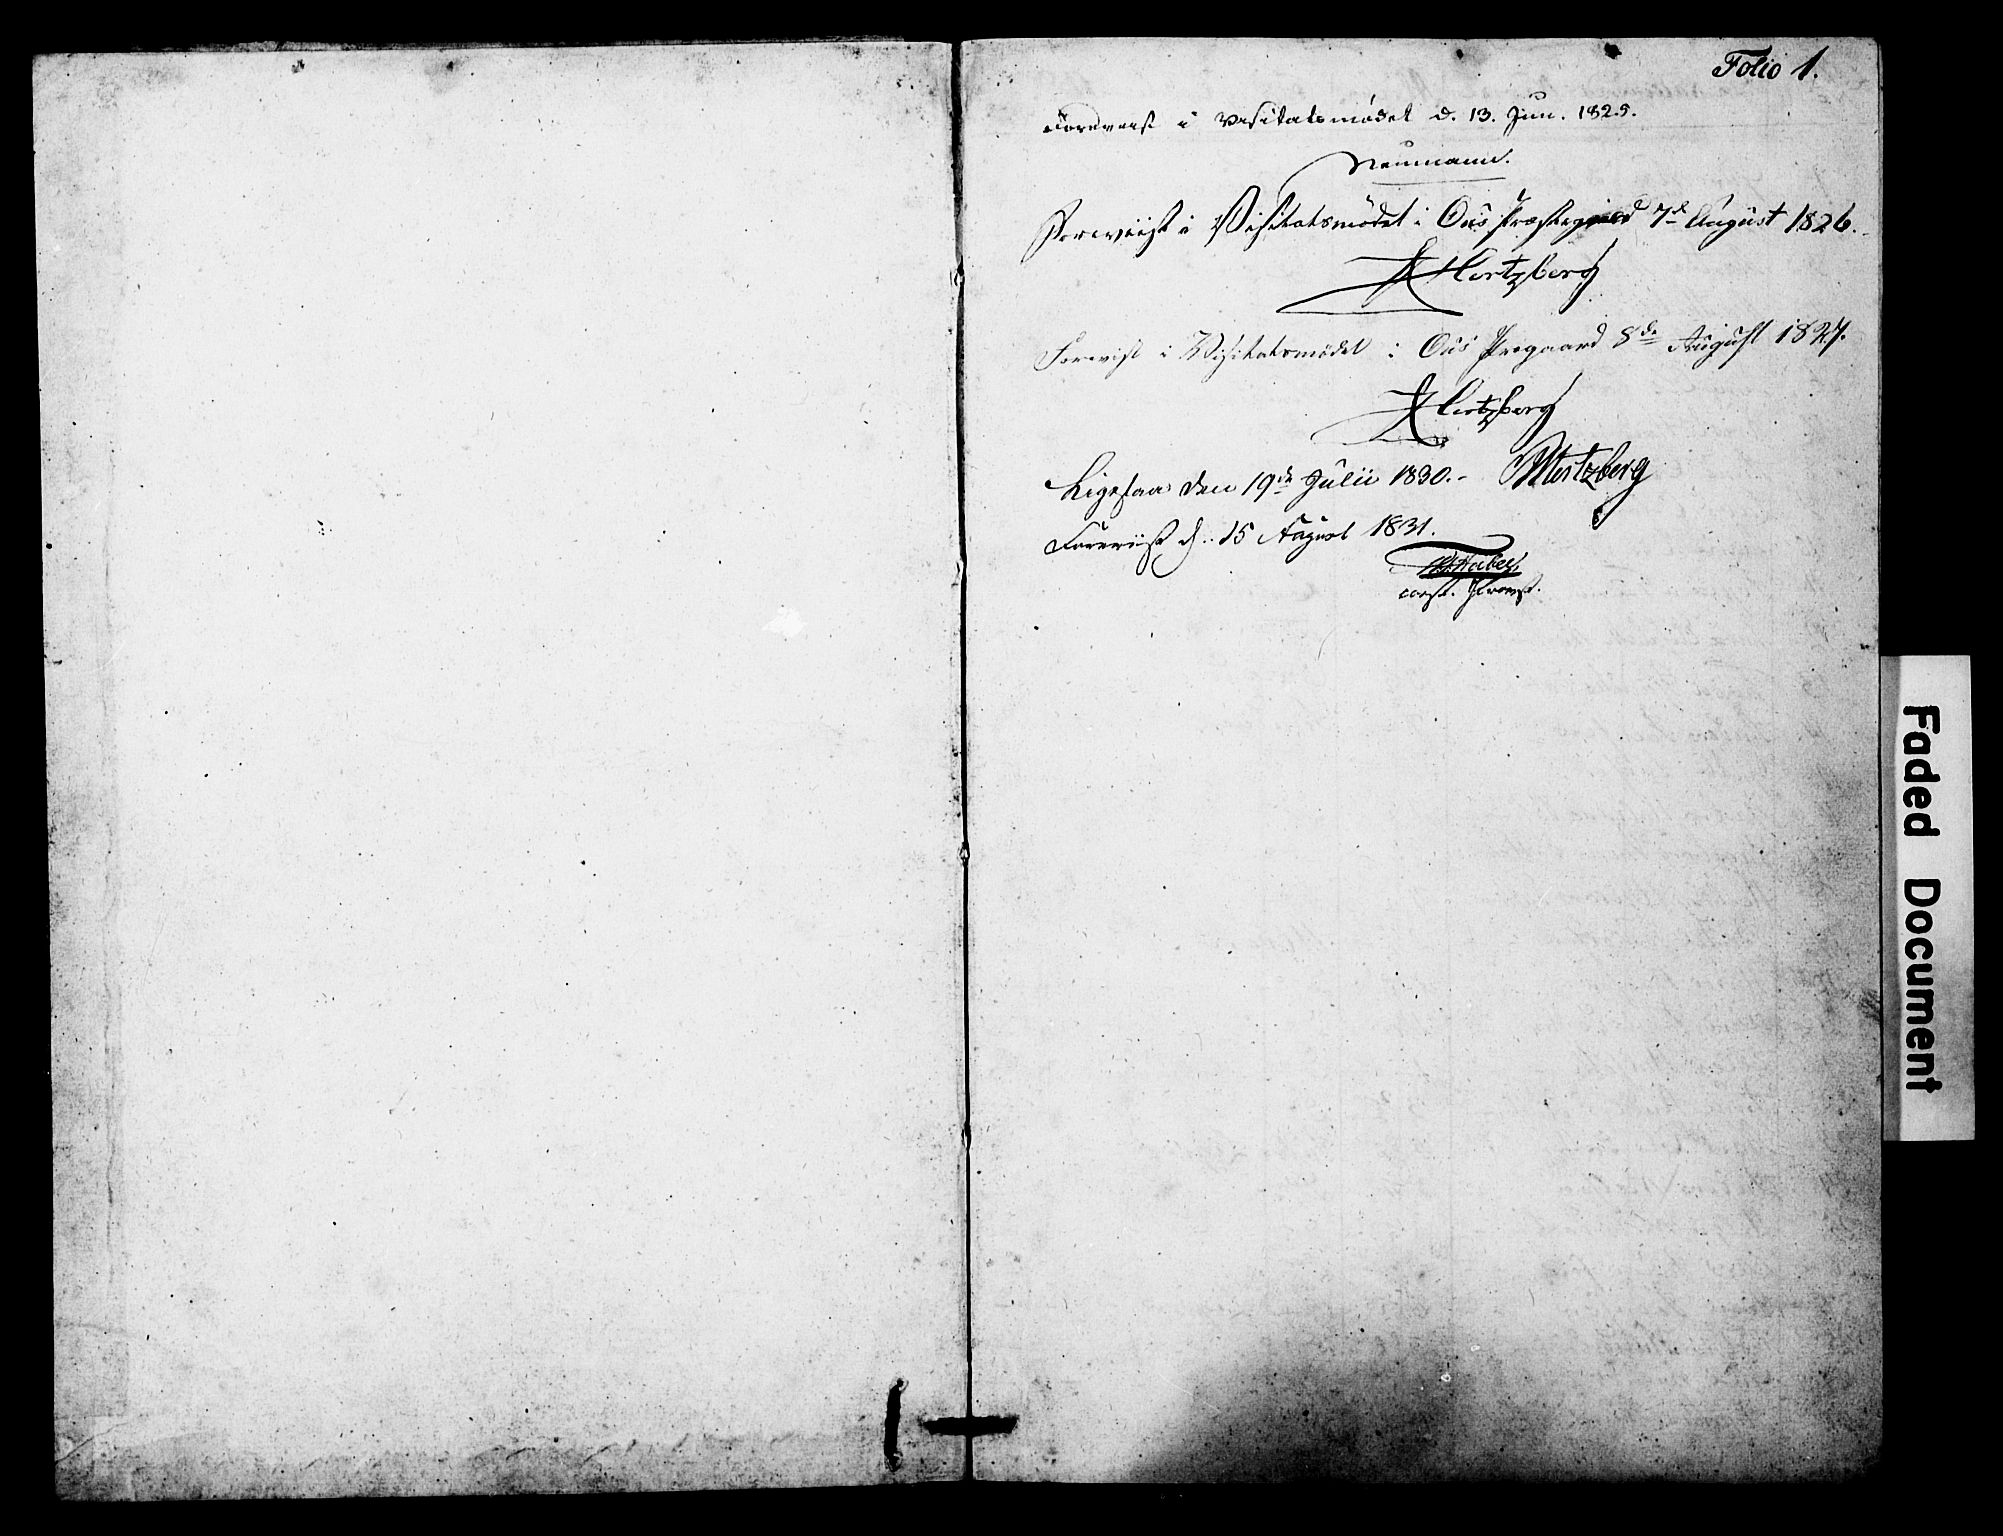 Folio 1.
Foreviist i Visitatsmødet d. 13. Jun. 1825.
Neumann.
Foreviist i Visitatsmødet i Ous Præstegaard 7d August 1826.
Hertzberg
Forevist i Visitatsmødet i Ous Prgaard 8de August 1827.
Hertzberg
Ligesaa den 19de Julii 1830.- Hertzberg
Foreviist d. 15 August 1831.
const. Provst.
Faded Document